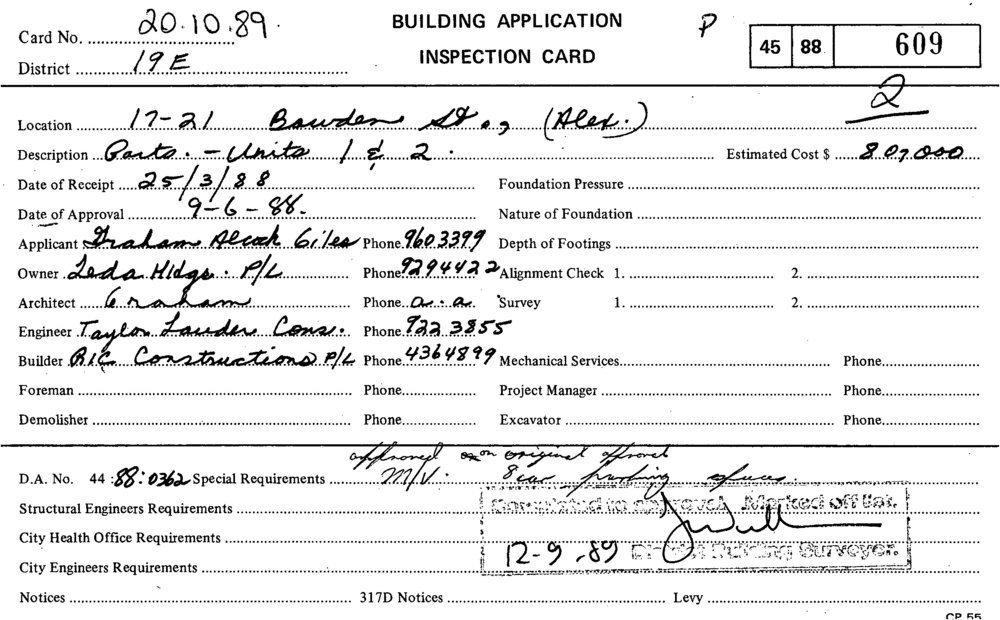 Card No. 20.10.89. BUILDING APPLICATION P 45 88 609
District 19E INSPECTION CARD
2
Location 17-21 Bowden St., (Alex.)
Description Parts. - Units 1 & 2. Estimated Cost $ 807,000
Date of Receipt 25/3/88 Foundation Pressure
Date of Approval 9-6-88. Nature of Foundation
Applicant Graham Alcock Giles Phone 9603399 Depth of Footings
Owner Leda Hldgs. P/L Phone 9294422 Alignment Check 1. 2.
Architect Graham Phone a.a. Survey 1. 2.
Engineer Taylor Lauder Cons. Phone 922 3855
Builder RIC Constructions P/L Phone 4364899 Mechanical Services Phone
Foreman Phone Project Manager Phone
Demolisher Phone Excavator Phone
approved on original approval
D.A. No. 44 :88:0362 Special Requirements M/V. 8 car parking spaces.
Structural Engineers Requirements Completed to approval. Marked off list.
City Health Office Requirements
12-9-89 District Building Surveyor.
City Engineers Requirements
Notices 317D Notices Levy
CP 55